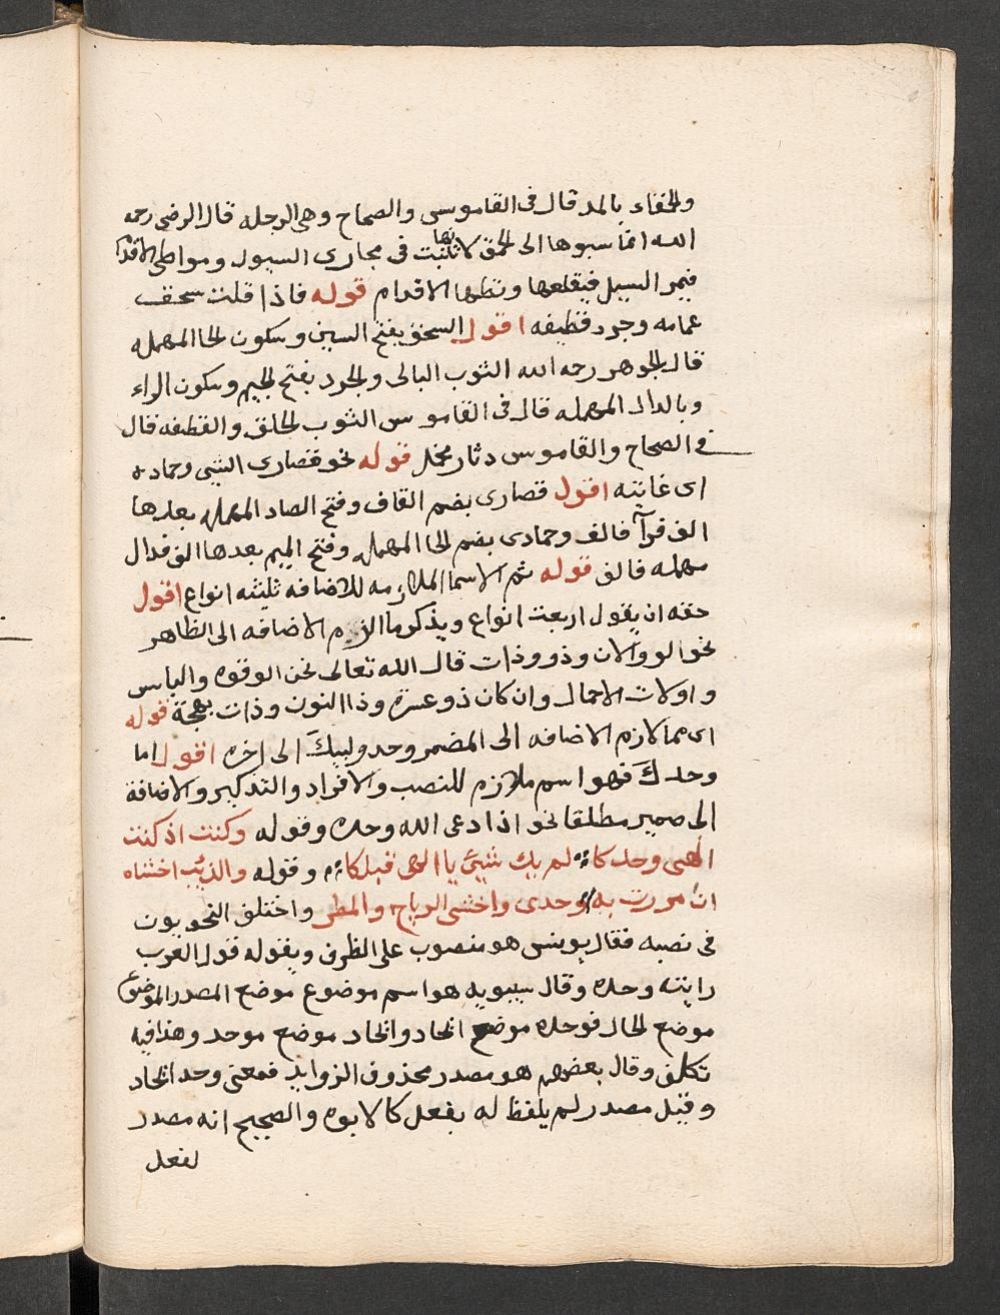 والحمقاء بالمد قال فى القاموس والصحاح وهى الرجله قال الرضى رحمه
الله انما سبوها الى الحمق لانها تنبت فى مجارى السيول ومواطى الاقدام
فيمر السيل فيقلعها وتطها الاقدام قوله فاذا قلت سحق
عمامه وجرد قطيفه اقول السحق بفتح السين وسكون الحا المهمله
قال الجوهر رحه الله الثوب البالى والجرد بفتح الجيم وسكون الراء
وبالدال المهمله قال فى القاموس الثوب الخلق والقطيفه قال
فى الصحاح والقاموس دثار مخمل قوله نحو قصارى الشى وحماده
اى غايته اقول قصارى بضم القاف وفتح الصاد المهمله بعدها
الف فرآ فالف وحمادى بضم الحا المهمله وفتح الميم بعدها الف فدال
مهمله فالف قوله ثم الاسما الملازمه للاضافه ثلثه انواع اقول
حقه ان يقول اربعت انواع ويذكر ما الزم الاضافه الى الظاهر
نحو الو والات وذو وذات قال الله تعالى نحن الو قوه والباس
واولات الاحمال وان كان ذو عسرة وذا النون وذات بهجة قوله
اى مما لازم الاضافه الى المضمر وحد ولبيك الى اخره اقول اما
وحدك فهو اسم ملازم للنصب والافراد والتذكير والاضافة
الى ضمير مطلقا نحو اذا دعى الله وحده وقوله وكنت اذ كنت
الهى وحدكا لم يك شيئ يا الهى قبلكا وقوله والذيب اخشاه
ان مررت به وحدى واخشى الرياح والمطر واختلف النحويون
فى نصبه فقال يونس هو منصوب على الظرف وبقوله قول العرب
رايته وحده وقال سيبويه هو اسم موضوع موضع المصدر الموضوع
موضع الحال فوحده موضع اتحاد واتحاد موضع موحد وهذا فيه
تكلف وقال بعضهم هو مصدر محذوف الزوايد فمعنى وحد اتحاد
وقيل مصدر لم يلفظ له بفعل كالابوه والصحيح انه مصدر
لفعل